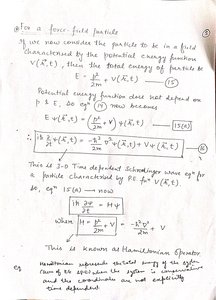 For a force-field particle
(5)
If we now consider the particle to be in a field
characterised by the potential energy function
V(r⃗,t), then the total energy of particle be
E = p²/2m + V(r⃗,t) —— (15)
Potential energy function does not depend on
p & E, so eqⁿ (14) now becomes
E ψ(r⃗,t) = (p²/2m + V) ψ(r⃗,t) —— 15(a)
∴ iħ ∂/∂t ψ(r⃗,t) = -ħ²/2m ∇²ψ(r⃗,t) + Vψ(r⃗,t)
This is 3-D Time dependent Schrodinger wave eqⁿ for
a particle characterised by P.E. fnⁿ V(r⃗,t).
So, eqⁿ 15(a) — now
iħ ∂ψ/∂t = Hψ
where H = p²/2m + V = -ħ²∇²/2m + V
This is known as Hamiltonian Operator
Hamiltonian represents the total energy of the system
of when the system is conservative
and the coordinate are not explicitly
time dependent